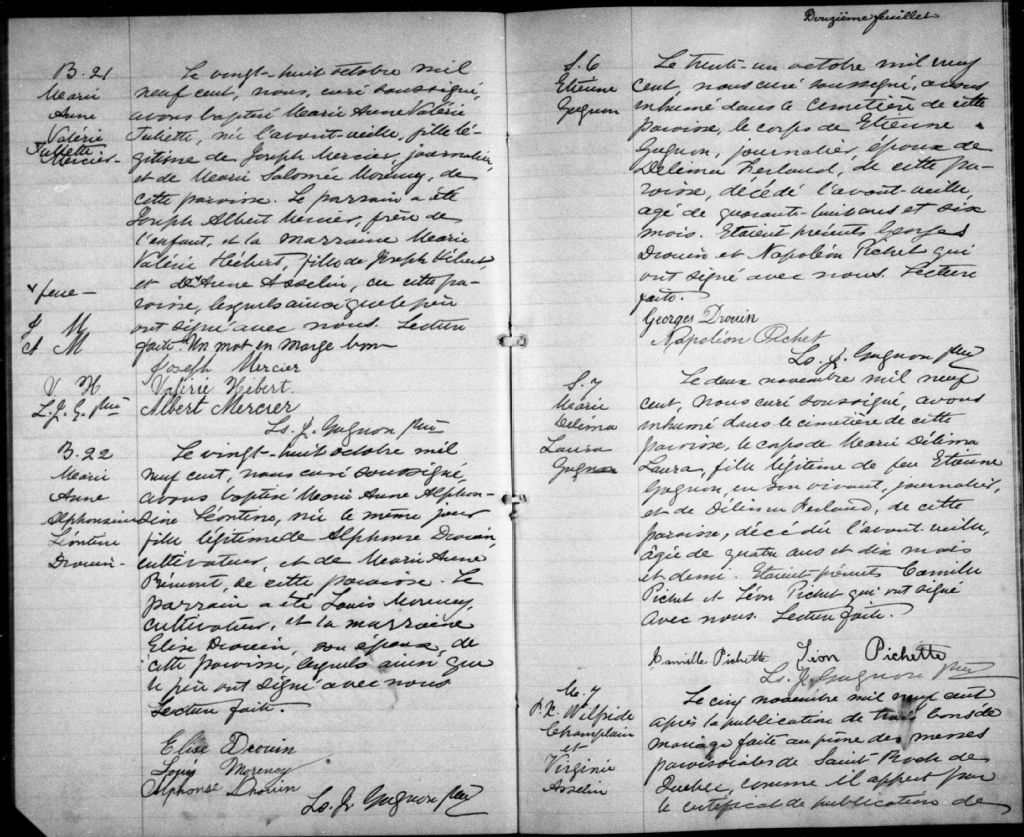 B. 21
Marie
Anne
Valérie
Juliette
Mercier -
Le vingt-huit octobre mil
neuf cent, nous, curé soussigné,
avons baptisé Marie Anne Valérie
Juliette, née l'avant-veille, fille lé-
gitime de Joseph Mercier, journalier,
et de Marie Salomée Morency, de
cette paroisse. Le parrain a été
Joseph Albert Mercier, frère de
l'enfant, et la marraine Marie
Valérie Hébert, fille de Joseph Hébert,
et de v Anne Asselin, de cette pa-
roisse, lesquels ainsi que le père
ont signé avec nous. Lecture
faite. Un mot en marge bon
v feue -
J M
A M
V H
L. J. G. ptre
Joseph Mercier
Valérie Hébert.
Albert Mercier
Ls. J. Gagnon ptre
B. 22
Marie
Anne
Alphonsine
Léontine
Drouin -
Le vingt-huit octobre mil
neuf cent, nous curé soussigné,
avons baptisé Marie Anne Alphon-
sine Léontine, née le même jour
fille légitime de Alphonse Drouin,
cultivateur, et de Marie Anne
Prémont, de cette paroisse. Le
parrain a été Louis Morency,
cultivateur, et la marraine
Elise Drouin, son épouse, de
cette paroisse, lesquels ainsi que
le père ont signé avec nous
Lecture faite.
Elise Drouin
Louis Morency
Alphonse Drouin
Ls. J. Gagnon ptre
Douzième feuillet
S. 6
Etienne
Gagnon
Le trente-un octobre mil neuf
cent, nous curé soussigné, avons
inhumé dans le cimetière de cette
paroisse, le corps de Etienne
Gagnon, journalier, époux de
Délima Ferland, de cette pa-
roisse, décédé l'avant-veille,
âgé de quarante-huit ans et six
mois. Etaient présents Georges
Drouin et Napoléon Pichet qui
ont signé avec nous. Lecture
faite.
Georges Drouin
Napoléon Pichet
Ls. J. Gagnon ptre
S. 7
Marie
Délima
Laura
Gagnon
Le deux novembre mil neuf
cent, nous curé soussigné, avons
inhumé dans le cimetière de cette
paroisse, le corps de Marie Délima
Laura, fille légitime de feu Etienne
Gagnon, en son vivant, journalier,
et de Délima Ferland, de cette
paroisse, décédée l'avant-veille,
âgée de quatre ans et dix mois
et demi. Etaient présents Camille
Pichet et Léon Pichet qui ont signé
avec nous. Lecture faite.
Camille Pichette Léon Pichette
Ls. J. Gagnon ptre
M. 7
F. X. Wilfride
Champlain
et
Virginie
Asselin
Le cinq novembre mil neuf cent
après la publication de trois bans de
mariage faite au prône des messes
paroissiales de Saint Roch de
Québec, comme il appert par
le certificat de publication de